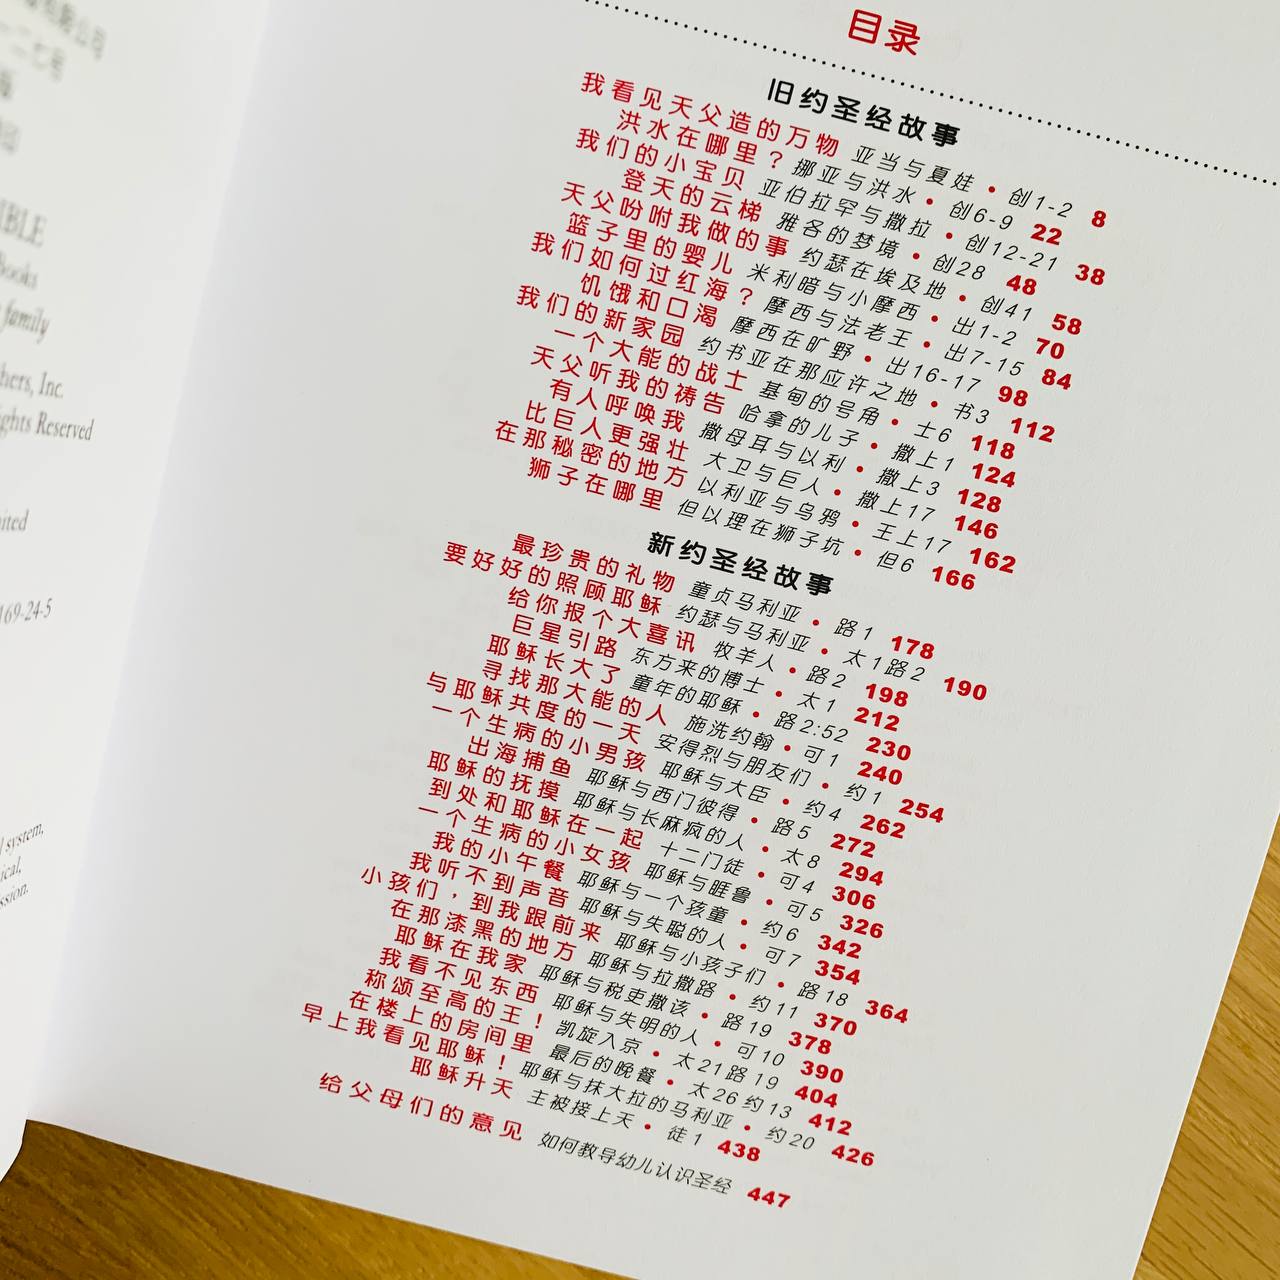 有限公司
一二七号
版
IBLE
Books
family
hers, Inc.
ghts Reserved
ited
169-24-5
system,
ical,
ssion.
目录
旧约圣经故事
我看见天父造的万物 亚当与夏娃 • 创1-2 8
洪水在哪里？ 挪亚与洪水 • 创6-9 22
我们的小宝贝 亚伯拉罕与撒拉 • 创12-21 38
登天的云梯 雅各的梦境 • 创28 48
天父吩咐我做的事 约瑟在埃及地 • 创41 58
篮子里的婴儿 米利暗与小摩西 • 出1-2 70
我们如何过红海？ 摩西与法老王 • 出7-15 84
饥饿和口渴 摩西在旷野 • 出16-17 98
我们的新家园 约书亚在那应许之地 • 书3 112
一个大能的战士 基甸的号角 • 士6 118
天父听我的祷告 哈拿的儿子 • 撒上1 124
有人呼唤我 撒母耳与以利 • 撒上3 128
比巨人更强壮 大卫与巨人 • 撒上17 146
在那秘密的地方 以利亚与乌鸦 • 王上17 162
狮子在哪里 但以理在狮子坑 • 但6 166
新约圣经故事
最珍贵的礼物 童贞马利亚 • 路1 178
要好好的照顾耶稣 约瑟与马利亚 • 太1路2 190
给你报个大喜讯 牧羊人 • 路2 198
巨星引路 东方来的博士 • 太1 212
耶稣长大了 童年的耶稣 • 路2:52 230
寻找那大能的人 施洗约翰 • 可1 240
与耶稣共度的一天 安得烈与朋友们 • 约1 254
一个生病的小男孩 耶稣与大臣 • 约4 262
出海捕鱼 耶稣与西门彼得 • 路5 272
耶稣的抚摸 耶稣与长麻疯的人 • 太8 294
到处和耶稣在一起 十二门徒 • 可4 306
一个生病的小女孩 耶稣与睚鲁 • 可5 326
我的小午餐 耶稣与一个孩童 • 约6 342
我听不到声音 耶稣与失聪的人 • 可7 354
小孩们，到我跟前来 耶稣与小孩子们 • 路18 364
在那漆黑的地方 耶稣与拉撒路 • 约11 370
耶稣在我家 耶稣与税吏撒该 • 路19 378
我看不见东西 耶稣与失明的人 • 可10 390
称颂至高的王！ 凯旋入京 • 太21路19 404
在楼上的房间里 最后的晚餐 • 太26约13 412
早上我看见耶稣！ 耶稣与抹大拉的马利亚 • 约20 426
耶稣升天 主被接上天 • 徒1 438
给父母们的意见 如何教导幼儿认识圣经 447